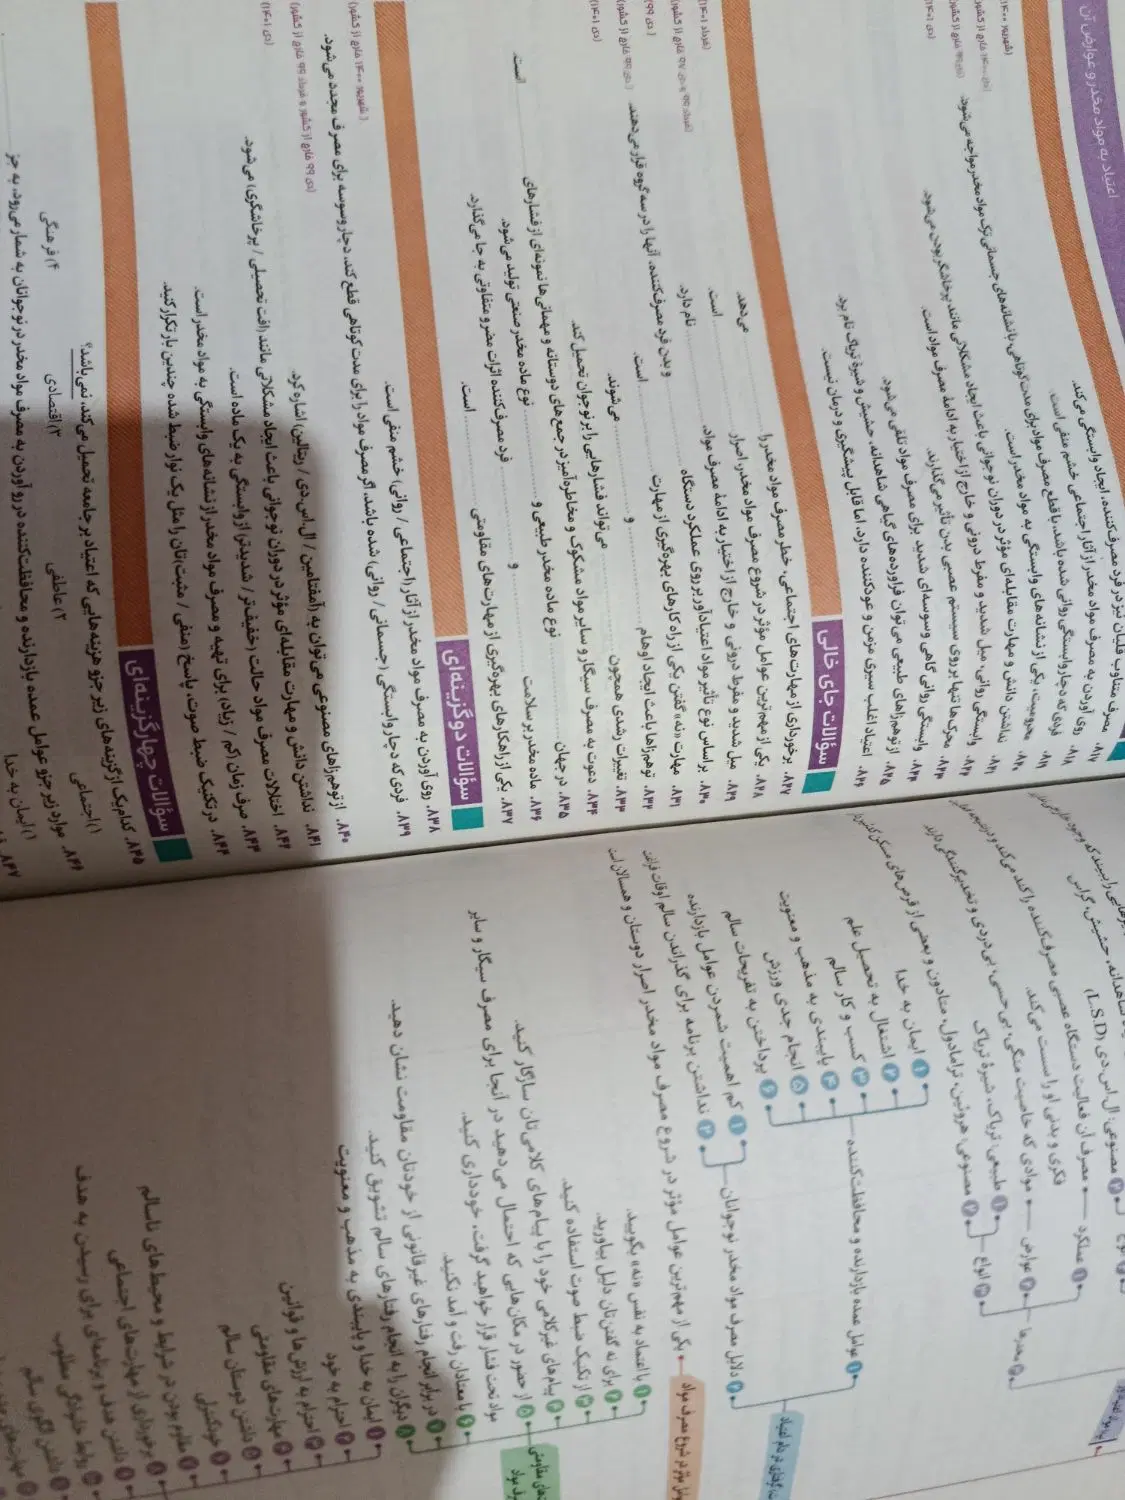 اعتیاد به مواد مخدر و عوارض آن
مصرف متناوب قلیان نیز در فرد مصرف‌کننده، ایجاد وابستگی می‌کند.
۸۱۸. روی آوردن به مصرف مواد مخدر از آثار اجتماعی خشم منفی است.
۸۱۹. فردی که دچار وابستگی روانی شده باشد، با قطع مصرف مواد برای مدت کوتاهی، با نشانه‌های جسمانی ترک مواد مخدر مواجه می‌شود.
۸۲۰. محرومیت، یکی از نشانه‌های وابستگی به مواد مخدر است.
۸۲۱. نداشتن دانش و مهارت مقابله‌ای مؤثر در دوران نوجوانی باعث ایجاد مشکلاتی مانند پرخاشگر بودن می‌شود.
۸۲۲. وابستگی روانی، میل شدید و مفرط درونی و خارج از اختیار به ادامهٔ مصرف مواد است.
۸۲۳. محرک‌ها تنها بر روی سیستم عصبی بدن تأثیر می‌گذارند.
۸۲۴. وابستگی روانی گاهی وسوسه‌ای شدید برای مصرف مواد تلقی می‌شود.
۸۲۵. از توهم‌زاهای طبیعی می‌توان فراورده‌های گیاهی شاهدانه، حشیش و شیرهٔ تریاک نام برد.
۸۲۶. اعتیاد اغلب سیری مزمن و عودکننده دارد، اما قابل پیشگیری و درمان نیست.
سؤالات جای خالی
۸۲۷. برخورداری از مهارت‌های اجتماعی، خطر مصرف مواد مخدر را ............ می‌دهد.
۸۲۸. یکی از مهم‌ترین عوامل مؤثر در شروع مصرف مواد مخدر، اصرار ............ است.
۸۲۹. میل شدید و مفرط درونی و خارج از اختیار به ادامهٔ مصرف مواد، ............ نام دارد.
۸۳۰. بر اساس نوع تأثیر مواد اعتیادآور بر روی عملکرد دستگاه ............ و بدن فرد مصرف‌کننده، آنها را در سه گروه قرار می‌دهند.
۸۳۱. مهارت «نه» گفتن یکی از راه کارهای بهره‌گیری از مهارت ............ است.
۸۳۲. توهم‌زاها باعث ایجاد اوهام ............ و ............ می‌شوند.
۸۳۳. تغییرات رشدی همچون ............ می‌تواند فشارهایی را بر نوجوان تحمیل کند.
۸۳۴. دعوت به مصرف سیگار و سایر مواد مشکوک و مخاطره‌آمیز در جمع‌های دوستانه و مهمانی‌ها نمونه‌ای از فشارهای ............ است.
۸۳۵. در جهان ............ نوع ماده مخدر طبیعی و ............ نوع ماده مخدر صنعتی تولید می‌شود.
۸۳۶. ماده مخدر بر سلامت ............ و ............ فرد مصرف‌کننده اثرات مضر و متفاوتی به جا می‌گذارد.
۸۳۷. یکی از راهکارهای بهره‌گیری از مهارت‌های مقاومتی ............ است.
سؤالات دو گزینه‌ای
۸۳۸. روی آوردن به مصرف مواد مخدر از آثار (اجتماعی / روانی) خشم منفی است.
۸۳۹. فردی که دچار وابستگی (جسمانی / روانی) شده باشد، اگر مصرف مواد را برای مدت کوتاهی قطع کند، دچار وسوسه برای مصرف مجدد می‌شود.
(شهریور ۱۴۰۰ خارج از کشور)
۸۴۰. از توهم‌زاهای مصنوعی می‌توان به (آمفتامین / ال.اس.دی / ریتالین) اشاره کرد.
(دی ۹۹ خارج از کشور و خرداد ۹۹ خارج از کشور)
۸۴۱. نداشتن دانش و مهارت مقابله‌ای مؤثر در دوران نوجوانی باعث ایجاد مشکلاتی مانند (افت تحصیلی / پرخاشگری) می‌شود.
(دی ۱۴۰۱)
۸۴۲. اختلالات مصرف مواد حالت (خفیف‌تر / شدیدتر) از وابستگی به یک ماده است.
۸۴۳. صرف زمان (کم / زیاد) برای تهیه و مصرف مواد مخدر از نشانه‌های وابستگی به مواد مخدر است.
۸۴۴. در تکنیک ضبط صوت، پاسخ (منفی / مثبت) تان را مثل یک نوار ضبط شده چندین بار تکرار کنید.
سؤالات چهارگزینه‌ای
۸۴۵. کدام‌یک از گزینه‌های زیر جزو هزینه‌هایی که اعتیاد بر جامعه تحمیل می‌کند، نمی‌باشد؟
۱) اجتماعی ۲) عاطفی ۳) اقتصادی ۴) فرهنگی
۸۴۶. موارد زیر جزو عوامل عمده بازدارنده و محافظت‌کننده در رو آوردن به مصرف مواد مخدر در نوجوانان به شمار می‌رود، به جز
۱) ایمان به خدا
۲ مصنوعی: ال‌اس‌دی (L.S.D)
۱ عملکرد مصرف آن فعالیت دستگاه عصبی مصرف‌کننده را کند می‌کند و در نتیجه
فکری و بدنی او را سست می‌کند.
مخدرها
۲ عوارض موادی که خاصیت منگی، بی‌حسی، بی‌دردی و تخدیرکنندگی دارند
۳ انواع
۱ طبیعی: تریاک، شیرهٔ تریاک
۲ مصنوعی: هروئین، ترامادول، متادون و بعضی از قرص‌های مسکن
۱ عوامل عمده بازدارنده و محافظت‌کننده
۱ ایمان به خدا
۲ اشتغال به تحصیل علم
۳ کسب و کار سالم
۴ پایبندی به مذهب و معنویت
۵ انجام جدی ورزش
۶ پرداختن به تفریحات سالم
۲ دلایل مصرف مواد مخدر نوجوانان
۱ کم اهمیت شمردن عوامل بازدارنده
۲ نداشتن برنامه برای گذراندن سالم اوقات فراغت
یکی از مهم‌ترین عوامل مؤثر در شروع مصرف مواد مخدر اصرار دوستان و همسالان است
۱ با اعتماد به نفس «نه» بگویید.
۲ برای نه گفتن‌تان دلیل بیاورید.
۳ از تکنیک ضبط صوت استفاده کنید.
۴ پیام‌های غیرکلامی خود را با پیام‌های کلامی‌تان سازگار کنید.
۵ از حضور در مکان‌هایی که احتمال می‌دهید در آنجا برای مصرف سیگار و سایر
مواد تحت فشار قرار خواهید گرفت، خودداری کنید.
۶ با معتادان رفت و آمد نکنید.
۷ در برابر انجام رفتارهای غیرقانونی از خودتان مقاومت نشان دهید.
۸ دیگران را به انجام رفتارهای سالم تشویق کنید.
۱ ایمان به خدا و پایبندی به مذهب و معنویت
۲ احترام به خود
۳ احترام به ارزش‌ها و قوانین
۴ مهارت‌های مقاومتی
۵ داشتن دوستان سالم
۶ خودکنترلی
۷ مقاوم بودن در شرایط و محیط‌های ناسالم
۸ برخورداری از مهارت‌های اجتماعی
۹ داشتن هدف و برنامه‌ای برای رسیدن به هدف
روابط خانوادگی مطلوب
داشتن الگوی سالم